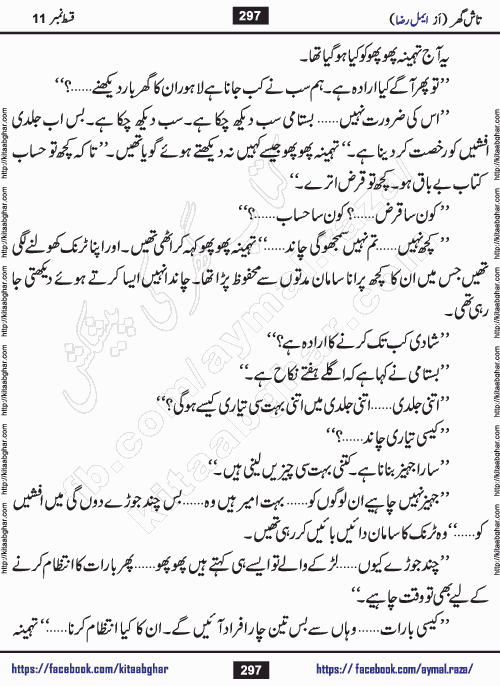 تاش گھر ( از ایمل رضا )
297
قسط نمبر 11
یہ آج تہمینہ پھوپھو کو کیا ہو گیا تھا۔
‘‘تو پھر آگے کیا ارادہ ہے۔ ہم سب نے کب جانا ہے لاہور ان کا گھر بار دیکھنے......؟’’
‘‘اس کی ضرورت نہیں...... بسنامی سب دیکھ چکا ہے۔ سب دیکھ چکا ہے۔ بس اب جلدی
افشیں کو رخصت کر دینا ہے۔’’ تہمینہ پھوپھو جیسے کہیں نہ دیکھتے ہوئے گویا تھیں۔ ‘‘تا کہ کچھ تو حساب
کتاب بے باق ہو۔ کچھ تو قرض اترے۔’’
‘‘کون سا قرض......؟ کون سا حساب......؟’’
‘‘کچھ نہیں...... تم نہیں سمجھو گی چاند......’’ تہمینہ پھوپھو کہہ کر اٹھی تھیں۔ اور اپنا ٹرنک کھولنے لگی
تھیں جس میں ان کا کچھ پرانا سامان مدتوں سے محفوظ پڑا تھا۔ چاند انہیں ایسا کرتے ہوئے دیکھتی جا
رہی تھی۔
‘‘شادی کب تک کرنے کا ارادہ ہے؟’’
‘‘بسنامی نے کہا ہے کہ اگلے ہفتے نکاح ہے۔’’
‘‘اتنی جلدی...... اتنی جلدی میں اتنی بہت سی تیاری کیسے ہوگی؟’’
‘‘کیسی تیاری چاند......؟’’
‘‘سارا جہیز بنانا ہے۔ کتنی بہت سی چیزیں لینی ہیں۔’’
‘‘جہیز نہیں چاہیے ان لوگوں کو...... بہت امیر ہیں وہ...... بس چند جوڑے دوں گی میں افشیں
کو......’’ وہ ٹرنک کا سامان دائیں بائیں کر رہی تھیں۔
‘‘چند جوڑے کیوں...... لڑکے والے تو ایسے ہی کہتے ہیں پھوپھو...... پھر بارات کا انتظام کرنے
کے لیے بھی تو وقت چاہیے۔’’
‘‘کیسی بارات...... وہاں سے بس تین چار افراد آئیں گے۔ ان کا کیا انتظام کرنا......’’ تہمینہ
https://facebook.com/kitaabghar
297
https:// facebook.com/aymal.raza/
http://kitaabghar.com http://kitaabghar.com http://kitaabghar.com http://kitaabghar.com http://kitaabghar.com http://kitaabghar.com
http://kitaabghar.com http://kitaabghar.com http://kitaabghar.com http://kitaabghar.com http://kitaabghar.com http://kitaabghar.com
کتاب گھر کی پیشکش
fb.com/aymal.raza/
kitaabghar.com